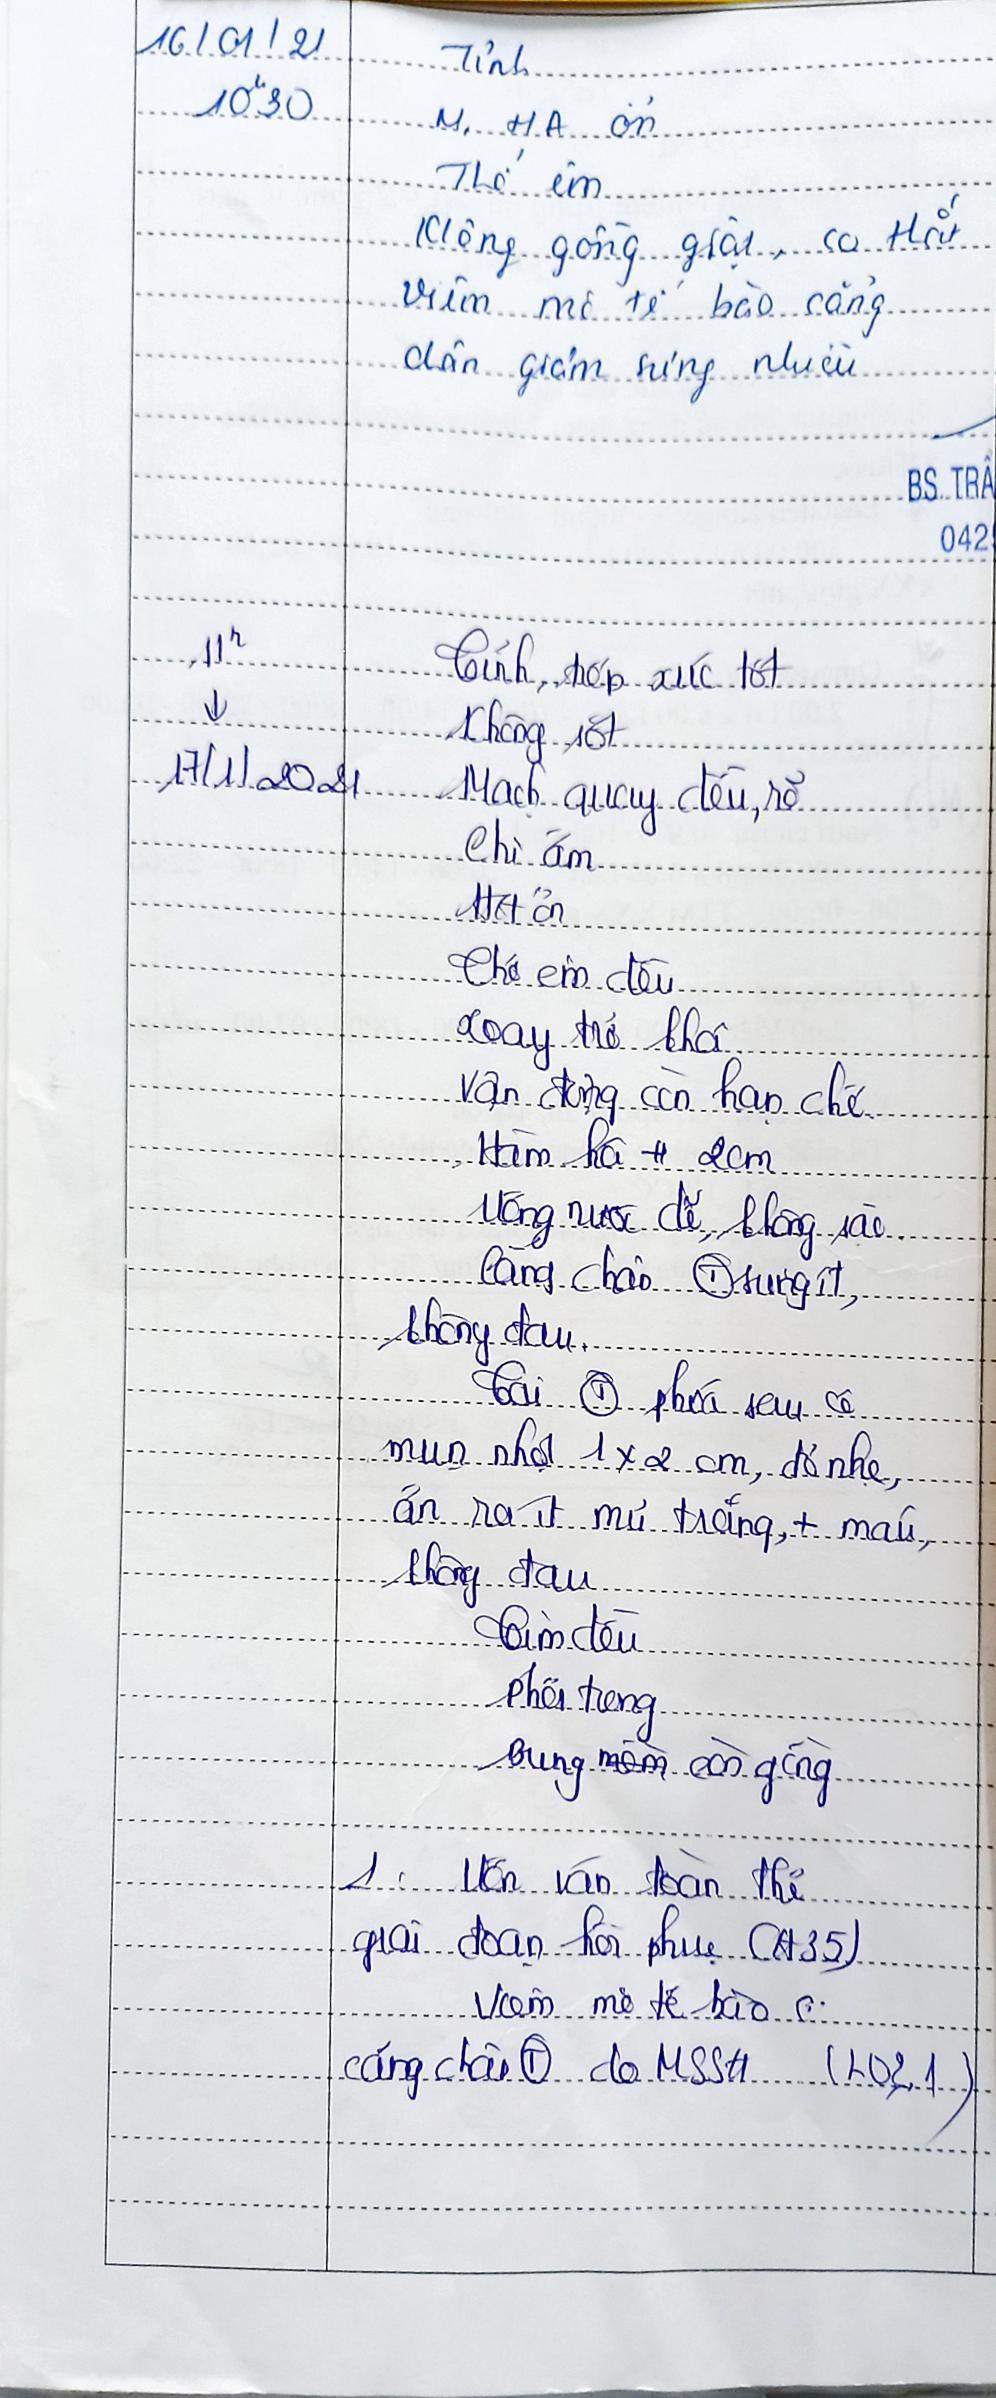 16/01/21
10h30
Tỉnh
M, HA ổn
Thở êm
Không gồng giật, co thắt
Viêm mô tế bào cẳng
chân giảm sưng nhiều
BS. TRẦ
042
11h
↓
17/1/2021
Tỉnh, tiếp xúc tốt
Không sốt
Mạch quay đều, rõ
Chi ấm
HA ổn
Thở êm đều
Xoay trở khá
Vận động còn hạn chế
Hàm há # 2cm
Uống nước dễ, không sặc.
Cẳng chân Ⓣ sưng ít,
không đau.
Tai Ⓣ phía sau có
mụn nhọt 1 x 2 cm, đỏ nhẹ,
ấn ra ít mủ trắng, + máu,
không đau
Tim đều
Phổi trong
Bụng mềm còn gồng
1. Uốn ván toàn thể
giai đoạn hồi phục (A35)
Viêm mô tế bào
cẳng chân Ⓣ do MSSA (L03.1)